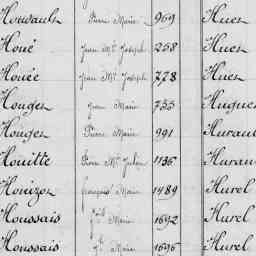 Housault Pierre Marie 969 Hues
Houé Jean Me Joseph 258 Hues
Houée Jean Me Joseph 778 Hues
Houges Jean Marie 755 Hugues
Houges Pierre Marie 991 Huraul
Houitte Pierre Me Julien 1136 Hurau
Houizes François Marie 1489 Hurel
Houssais Marie 1692 Hurel
Houssais Marie 1696 Hurel